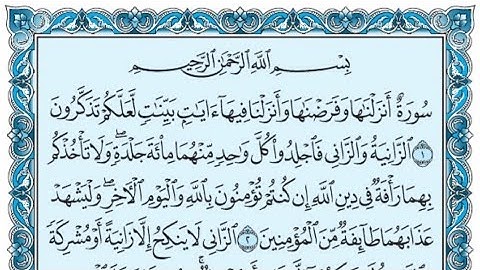 بِسْمِ اللَّهِ الرَّحْمَٰنِ الرَّحِيمِ
سُورَةٌ أَنزَلْنَٰهَا وَفَرَضْنَٰهَا وَأَنزَلْنَا فِيهَآ ءَايَٰتٍۭ بَيِّنَٰتٍ لَّعَلَّكُمْ تَذَكَّرُونَ
١ ٱلزَّانِيَةُ وَٱلزَّانِى فَٱجْلِدُوا۟ كُلَّ وَٰحِدٍ مِّنْهُمَا مِا۟ئَةَ جَلْدَةٍ ۖ وَلَا تَأْخُذْكُم
بِهِمَا رَأْفَةٌ فِى دِينِ ٱللَّهِ إِن كُنتُمْ تُؤْمِنُونَ بِٱللَّهِ وَٱلْيَوْمِ ٱلْءَاخِرِ ۖ وَلْيَشْهَدْ
عَذَابَهُمَا طَآئِفَةٌ مِّنَ ٱلْمُؤْمِنِينَ ٢ ٱلزَّانِى لَا يَنكِحُ إِلَّا زَانِيَةً أَوْ مُشْرِكَةً